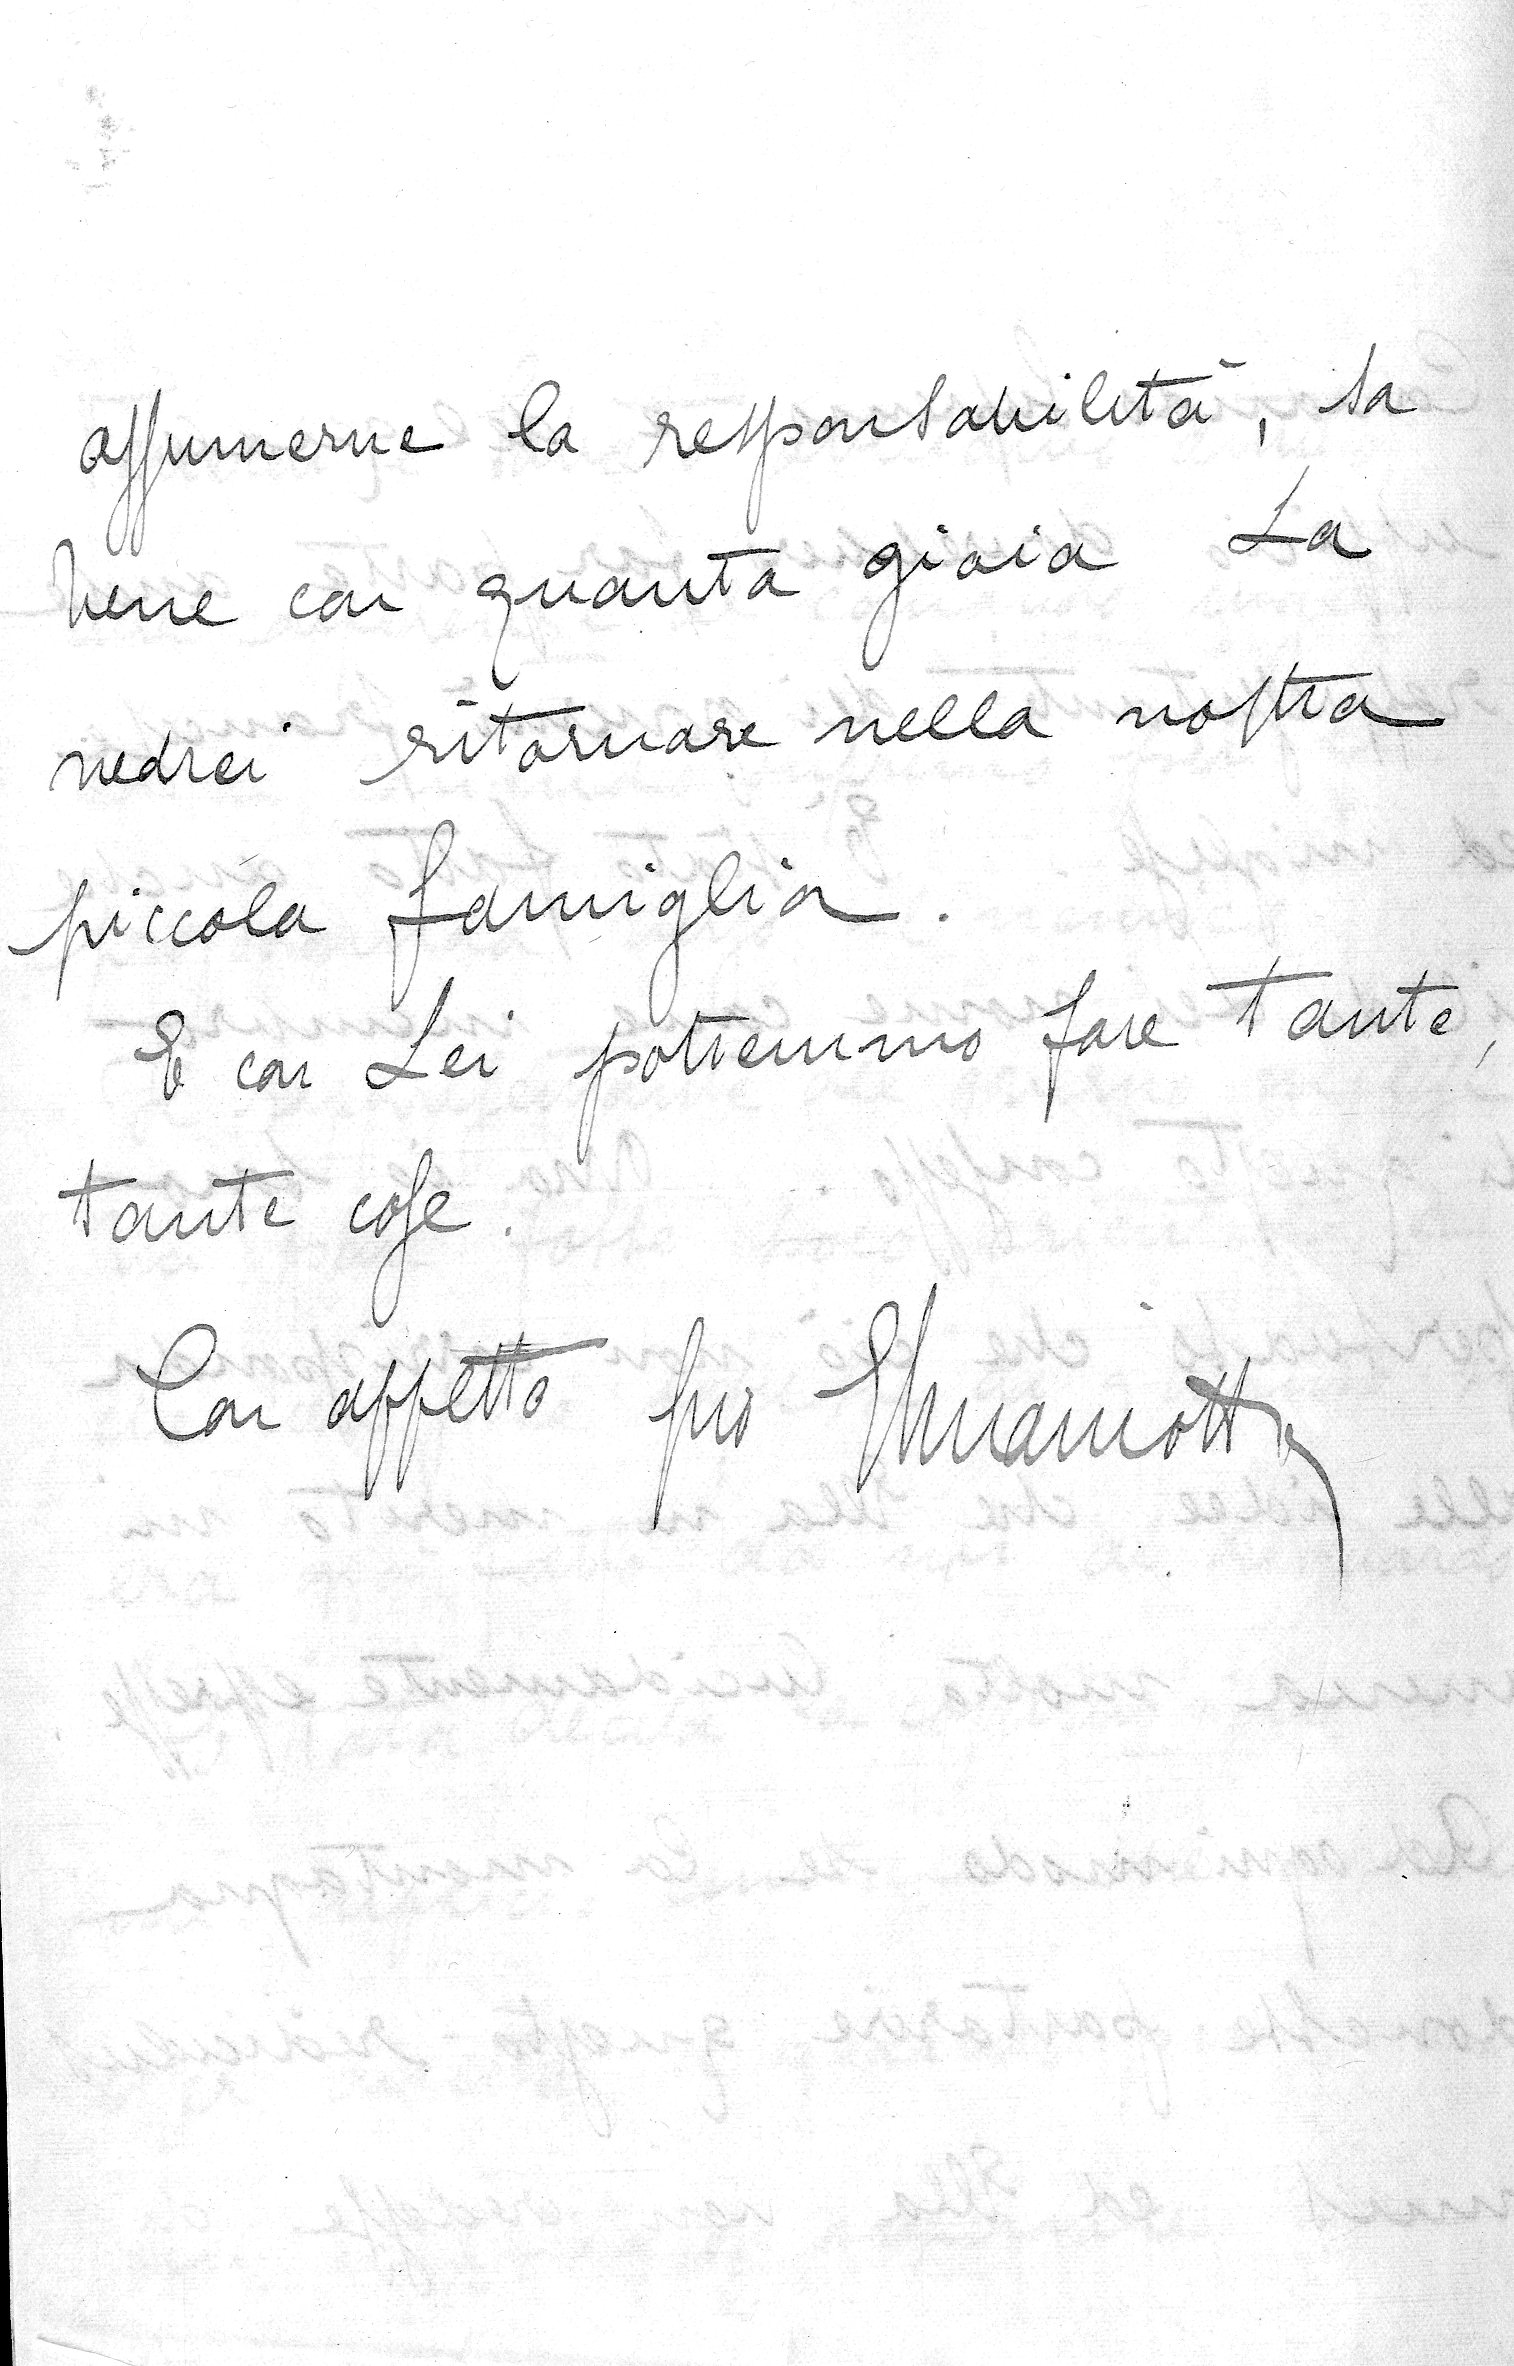 assumerne la responsabilità, sa
bene con quanta gioia La
vedrei ritornare nella nostra
piccola famiglia.
E con Lei potremmo fare tante,
tante cose.
Con affetto suo